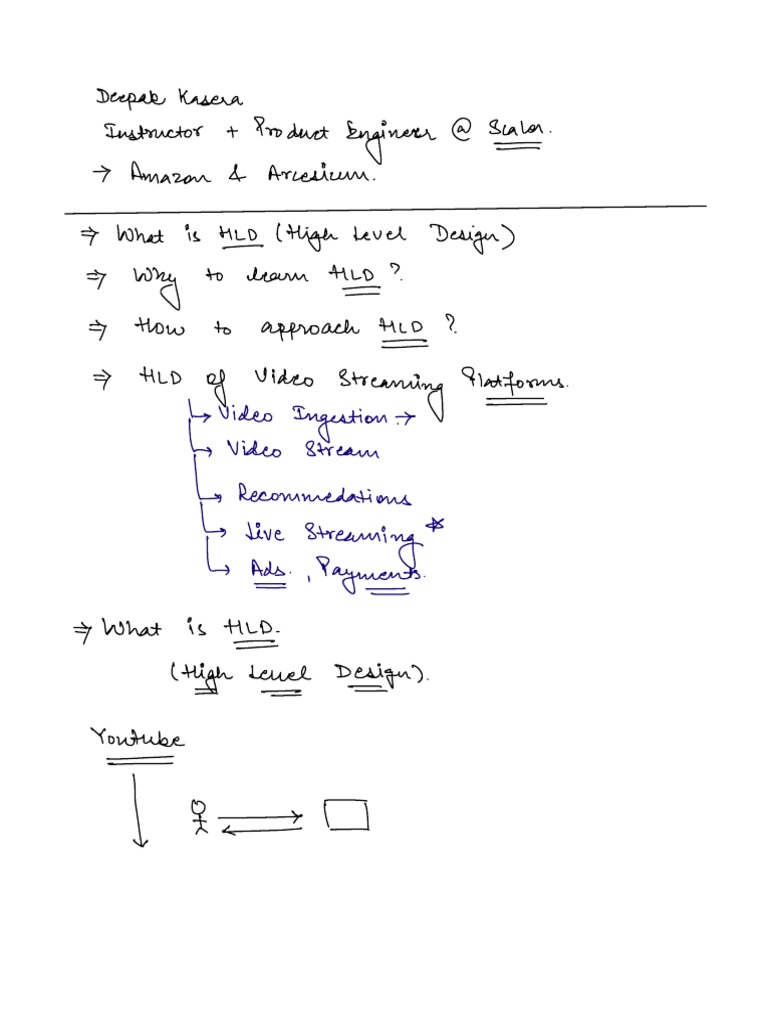 Deepak Kasera
Instructor + Product Engineer @ Scaler.
→ Amazon & Arcesium.
⇒ What is HLD (High Level Design)
⇒ Why to learn HLD ?
⇒ How to approach HLD ?
⇒ HLD of Video Streaming Platforms.
↳ Video Ingestion →
↳ Video Stream
↳ Recommedations
↳ Live Streaming *
↳ Ads. , Payments.
⇒ What is HLD.
(High Level Design).
Youtube